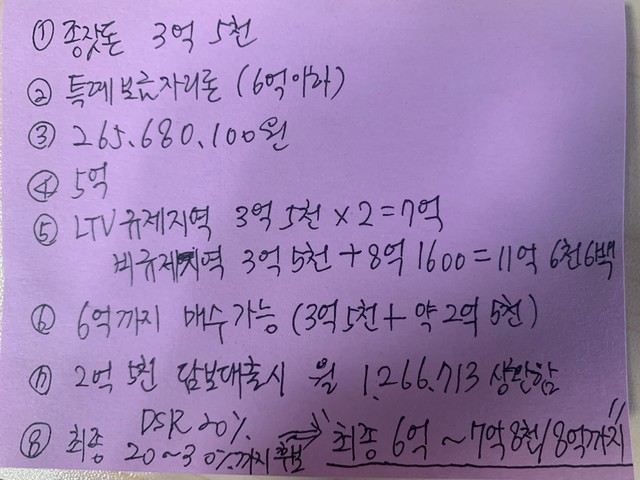 ① 종잣돈 3억 5천
② 특례보금자리론 (6억이하)
③ 265.680.100원
④ 5억
⑤ LTV 규제지역 3억 5천 x 2 = 7억
비규제지역 3억 5천 + 8억 1600 = 11억 6천 6백
⑥ 6억까지 매수가능 (3억 5천 + 약 2억 5천)
⑦ 2억 5천 담보대출시 월 1.266.713 상환함
⑧ 최종 DSR 20%
20~30%까지 후보 => 최종 6억 ~ 7억 8천/8억까지